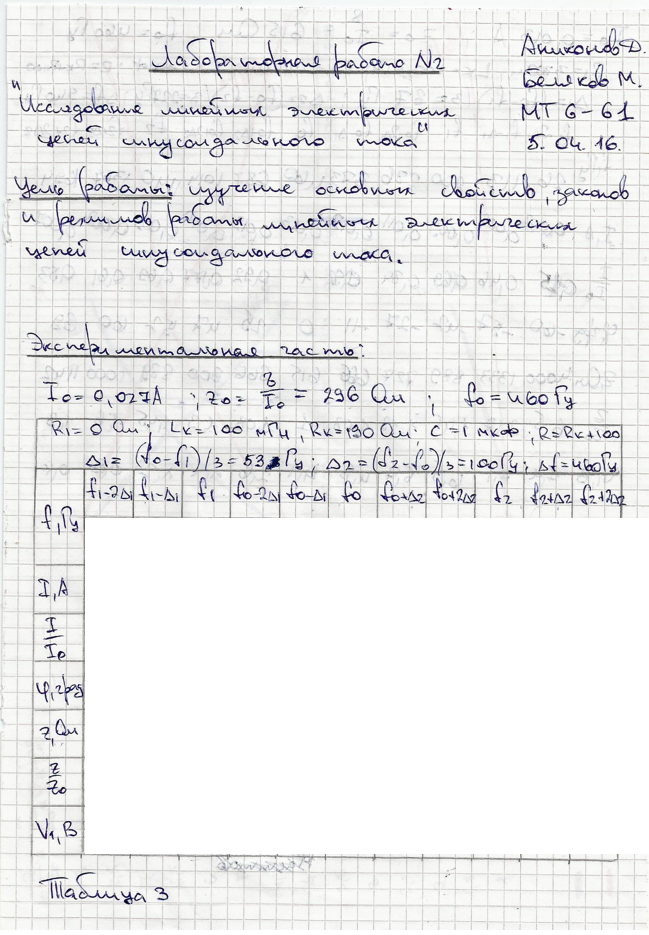 Лабораторная работа №2
Аниконов Д.
Беляков М.
МТ 6-61
5.04.16.
"Исследование линейных электрических
цепей синусоидального тока"
Цель работы: изучение основных свойств, законов
и режимов работы линейных электрических
цепей синусоидального тока.
Экспериментальная часть:
I0 = 0,027А ; z0 = 8/I0 = 296 Ом ; f0 = 460 Гц
R1 = 0 Ом ; Lк = 100 мГн, Rк = 190 Ом ; C = 1 мкФ ; R = Rк+100
Δ1 = (f0-f1)/3 = 53 Гц ; Δ2 = (f2-f0)/3 = 100 Гц ; Δf = 460 Гц
f1-2Δ1 f1-Δ1 f1 f0-2Δ1 f0-Δ1 f0 f0+Δ2 f0+2Δ2 f2 f2+Δ2 f2+2Δ2
f, Гц
I, А
I/I0
φ, град
z, Ом
z/z0
V1, В
Таблица 3